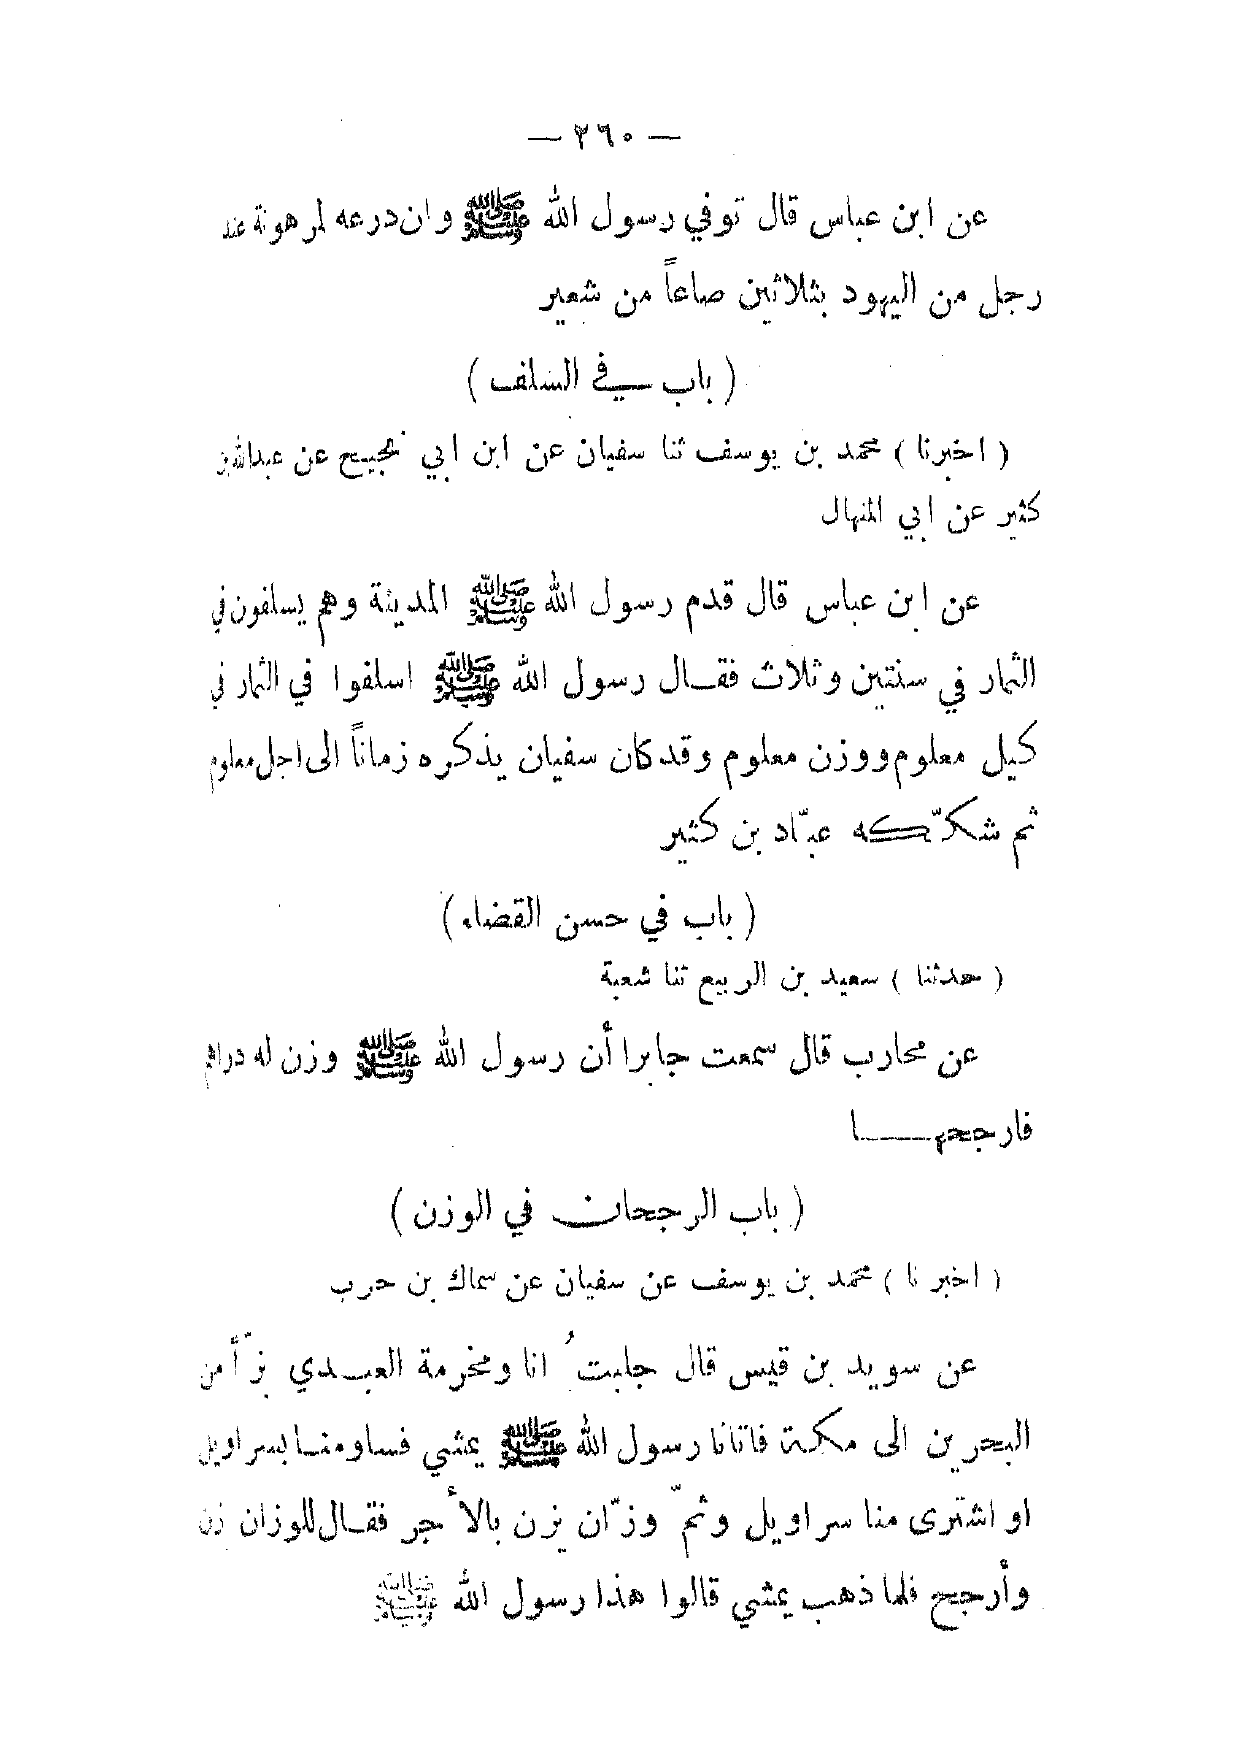 — ٢٦٠ —
عن ابن عباس قال توفي رسول الله ﷺ وان درعه لمرهونة عند
رجل من اليهود بثلاثين صاعاً من شعير
( باب في السلف )
( اخبرنا ) محمد بن يوسف ثنا سفيان عن ابن ابي نجيح عن عبدالله بن
كثير عن ابي المنهال
عن ابن عباس قال قدم رسول الله ﷺ المدينة وهم يسلفون في
الثمار في سنتين وثلاث فقال رسول الله ﷺ اسلفوا في الثمار في
كيل معلوم ووزن معلوم وقد كان سفيان يذكره زماناً الى اجل معلوم
ثم شكّكه عبّاد بن كثير
( باب في حسن القضاء )
( حدثنا ) سعيد بن الربيع ثنا شعبة
عن محارب قال سمعت جابرا أن رسول الله ﷺ وزن له دراهم
فارجحهـــا
( باب الرجحان في الوزن )
( اخبرنا ) محمد بن يوسف عن سفيان عن سماك بن حرب
عن سويد بن قيس قال جلبتُ انا ومخرمة العبدي بزّاً من
البحرين الى مكة فاتانا رسول الله ﷺ يمشي فساومنا بسراويل
او اشترى منا سراويل وثمّ وزّان يزن بالأجر فقال للوزان زن
وأرجح فلما ذهب يمشي قالوا هذا رسول الله ﷺ